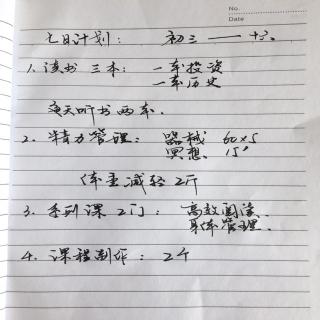 No.
Date
七日计划: 初三 ——
1. 读书 三本: 一本投资
一本历史
每天听书两本.
2. 精力管理: 器械 60×5
冥想 15'
体重减轻 2斤
3. 系列课 2门: 高效阅读、
身体管理.
4. 课程制作: 2个